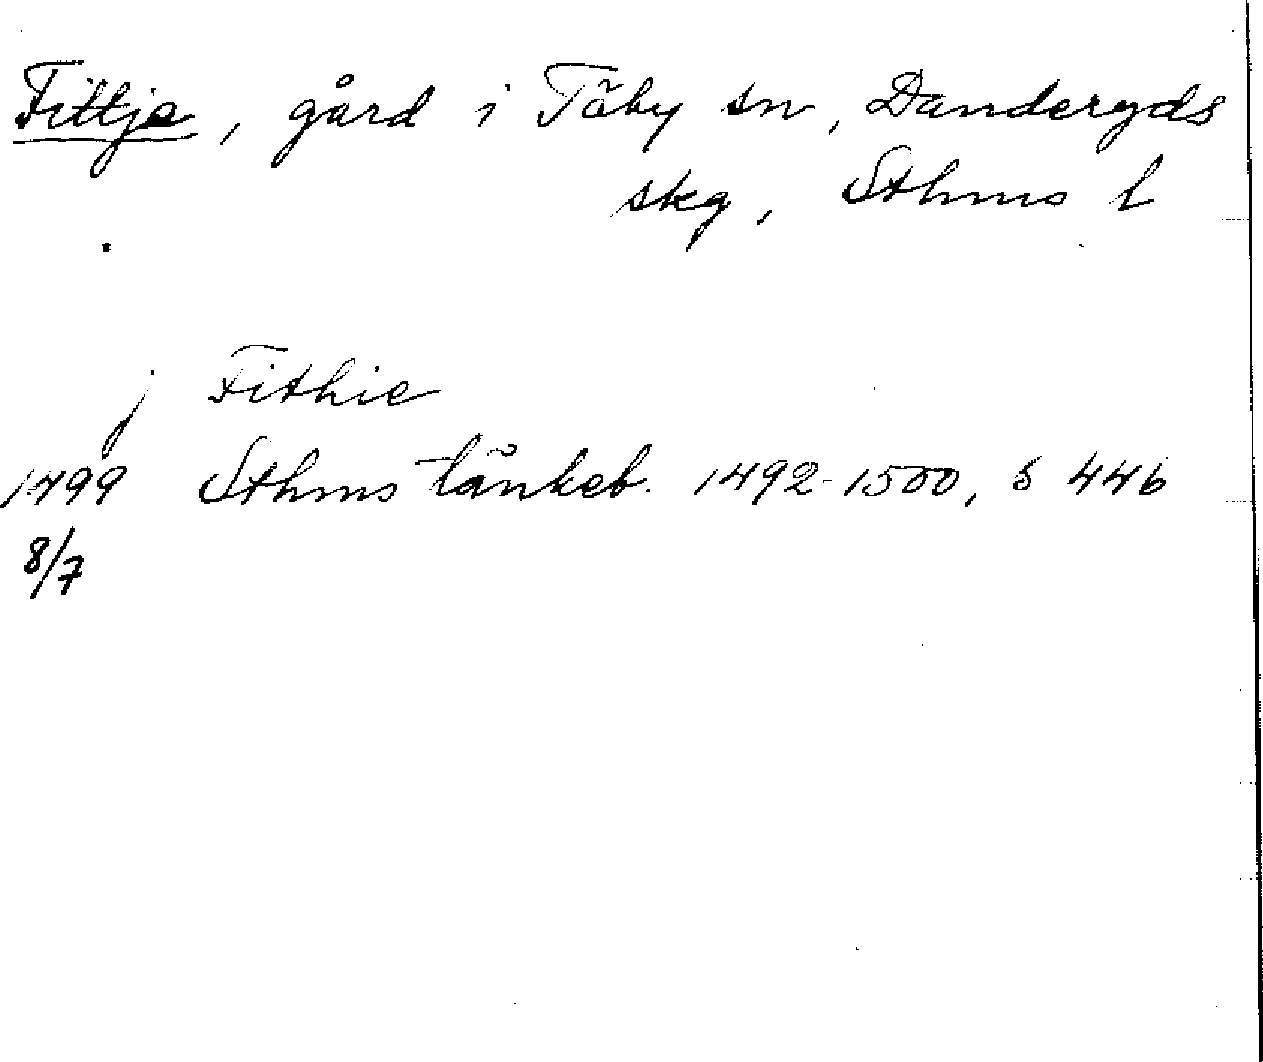 Fittja, gård i Täby sn, Danderyds
skg, Sthms l
j Fithie
1499 Sthms tänkeb. 1492-1500, s 446
8/7